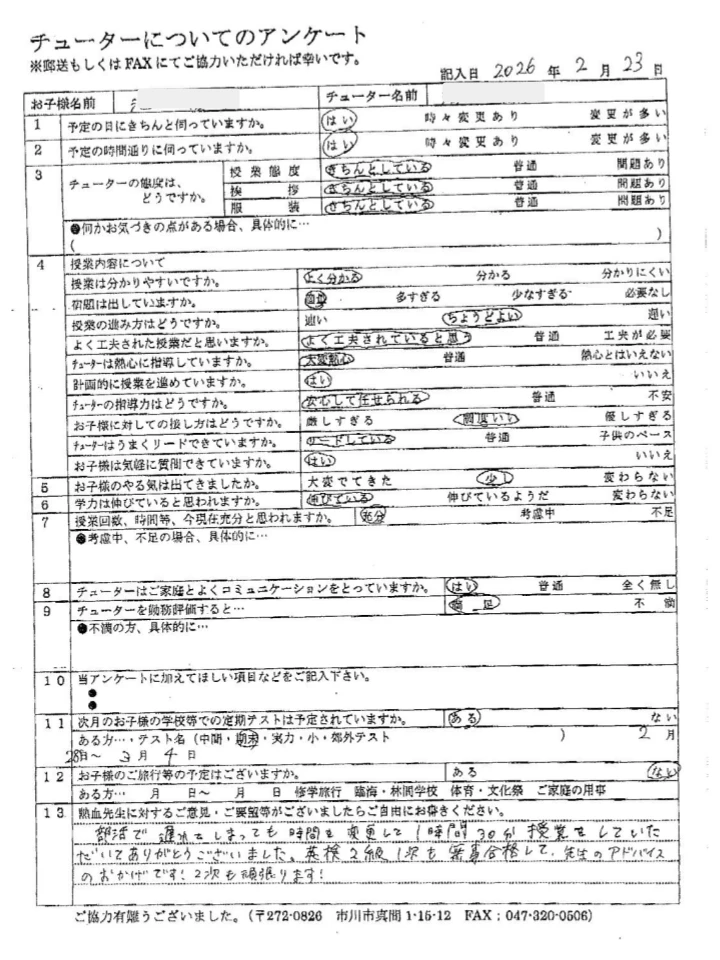 チューターについてのアンケート
※郵送もしくは FAX にてご協力いただければ幸いです。
記入日 2026 年 2 月 23 日
お子様名前 チューター名前
1 予定の日にきちんと伺っていますか。 はい 時々変更あり 変更が多い
2 予定の時間通りに伺っていますか。 はい 時々変更あり 変更が多い
3 チューターの態度は、どうですか。 授業態度 きちんとしている 普通 問題あり
挨拶 きちんとしている 普通 問題あり
服装 きちんとしている 普通 問題あり
●何かお気づきの点がある場合、具体的に…
( )
4 授業内容について
授業は分かりやすいですか。 よく分かる 分かる 分かりにくい
宿題は出していますか。 適量 多すぎる 少なすぎる 必要なし
授業の進み方はどうですか。 速い ちょうどよい 遅い
よく工夫された授業だと思いますか。 よく工夫されていると思う 普通 工夫が必要
チューターは熱心に指導していますか。 大変熱心 普通 熱心とはいえない
計画的に授業を進めていますか。 はい いいえ
チューターの指導力はどうですか。 安心して任せられる 普通 不安
お子様に対しての接し方はどうですか。 厳しすぎる 丁度いい 優しすぎる
チューターはうまくリードできていますか。 リードしている 普通 子供のペース
お子様は気軽に質問できていますか。 はい いいえ
5 お子様のやる気は出てきましたか。 大変でてきた 少し 変わらない
6 学力は伸びていると思われますか。 伸びている 伸びているようだ 変わらない
7 授業回数、時間等、今現在充分と思われますか。 充分 考慮中 不足
●考慮中、不足の場合、具体的に…
8 チューターはご家庭とよくコミュニケーションをとっていますか。 はい 普通 全く無し
9 チューターを勤務評価すると… 満足 不満
●不満の方、具体的に…
10 当アンケートに加えてほしい項目などをご記入下さい。
●
●
11 次月のお子様の学校等での定期テストは予定されていますか。 ある ない
ある方…・テスト名（中間・期末・実力・小・郊外テスト ） 2 月
28日～ 3 月 4 日
12 お子様のご旅行等の予定はございますか。 ある ない
ある方… 月 日～ 月 日 修学旅行 臨海・林間学校 体育・文化祭 ご家庭の用事
13 熱血先生に対するご意見・ご要望等がございましたらご自由にお書きください。
部活で遅れてしまっても時間を変更して1時間30分授業をしていた
だいてありがとうございました。英検2級1次も無事合格して、先生のアドバイス
のおかげです! 2次も頑張ります!
ご協力有難うございました。（〒272-0826 市川市真間 1-15-12 FAX：047-320-0506）